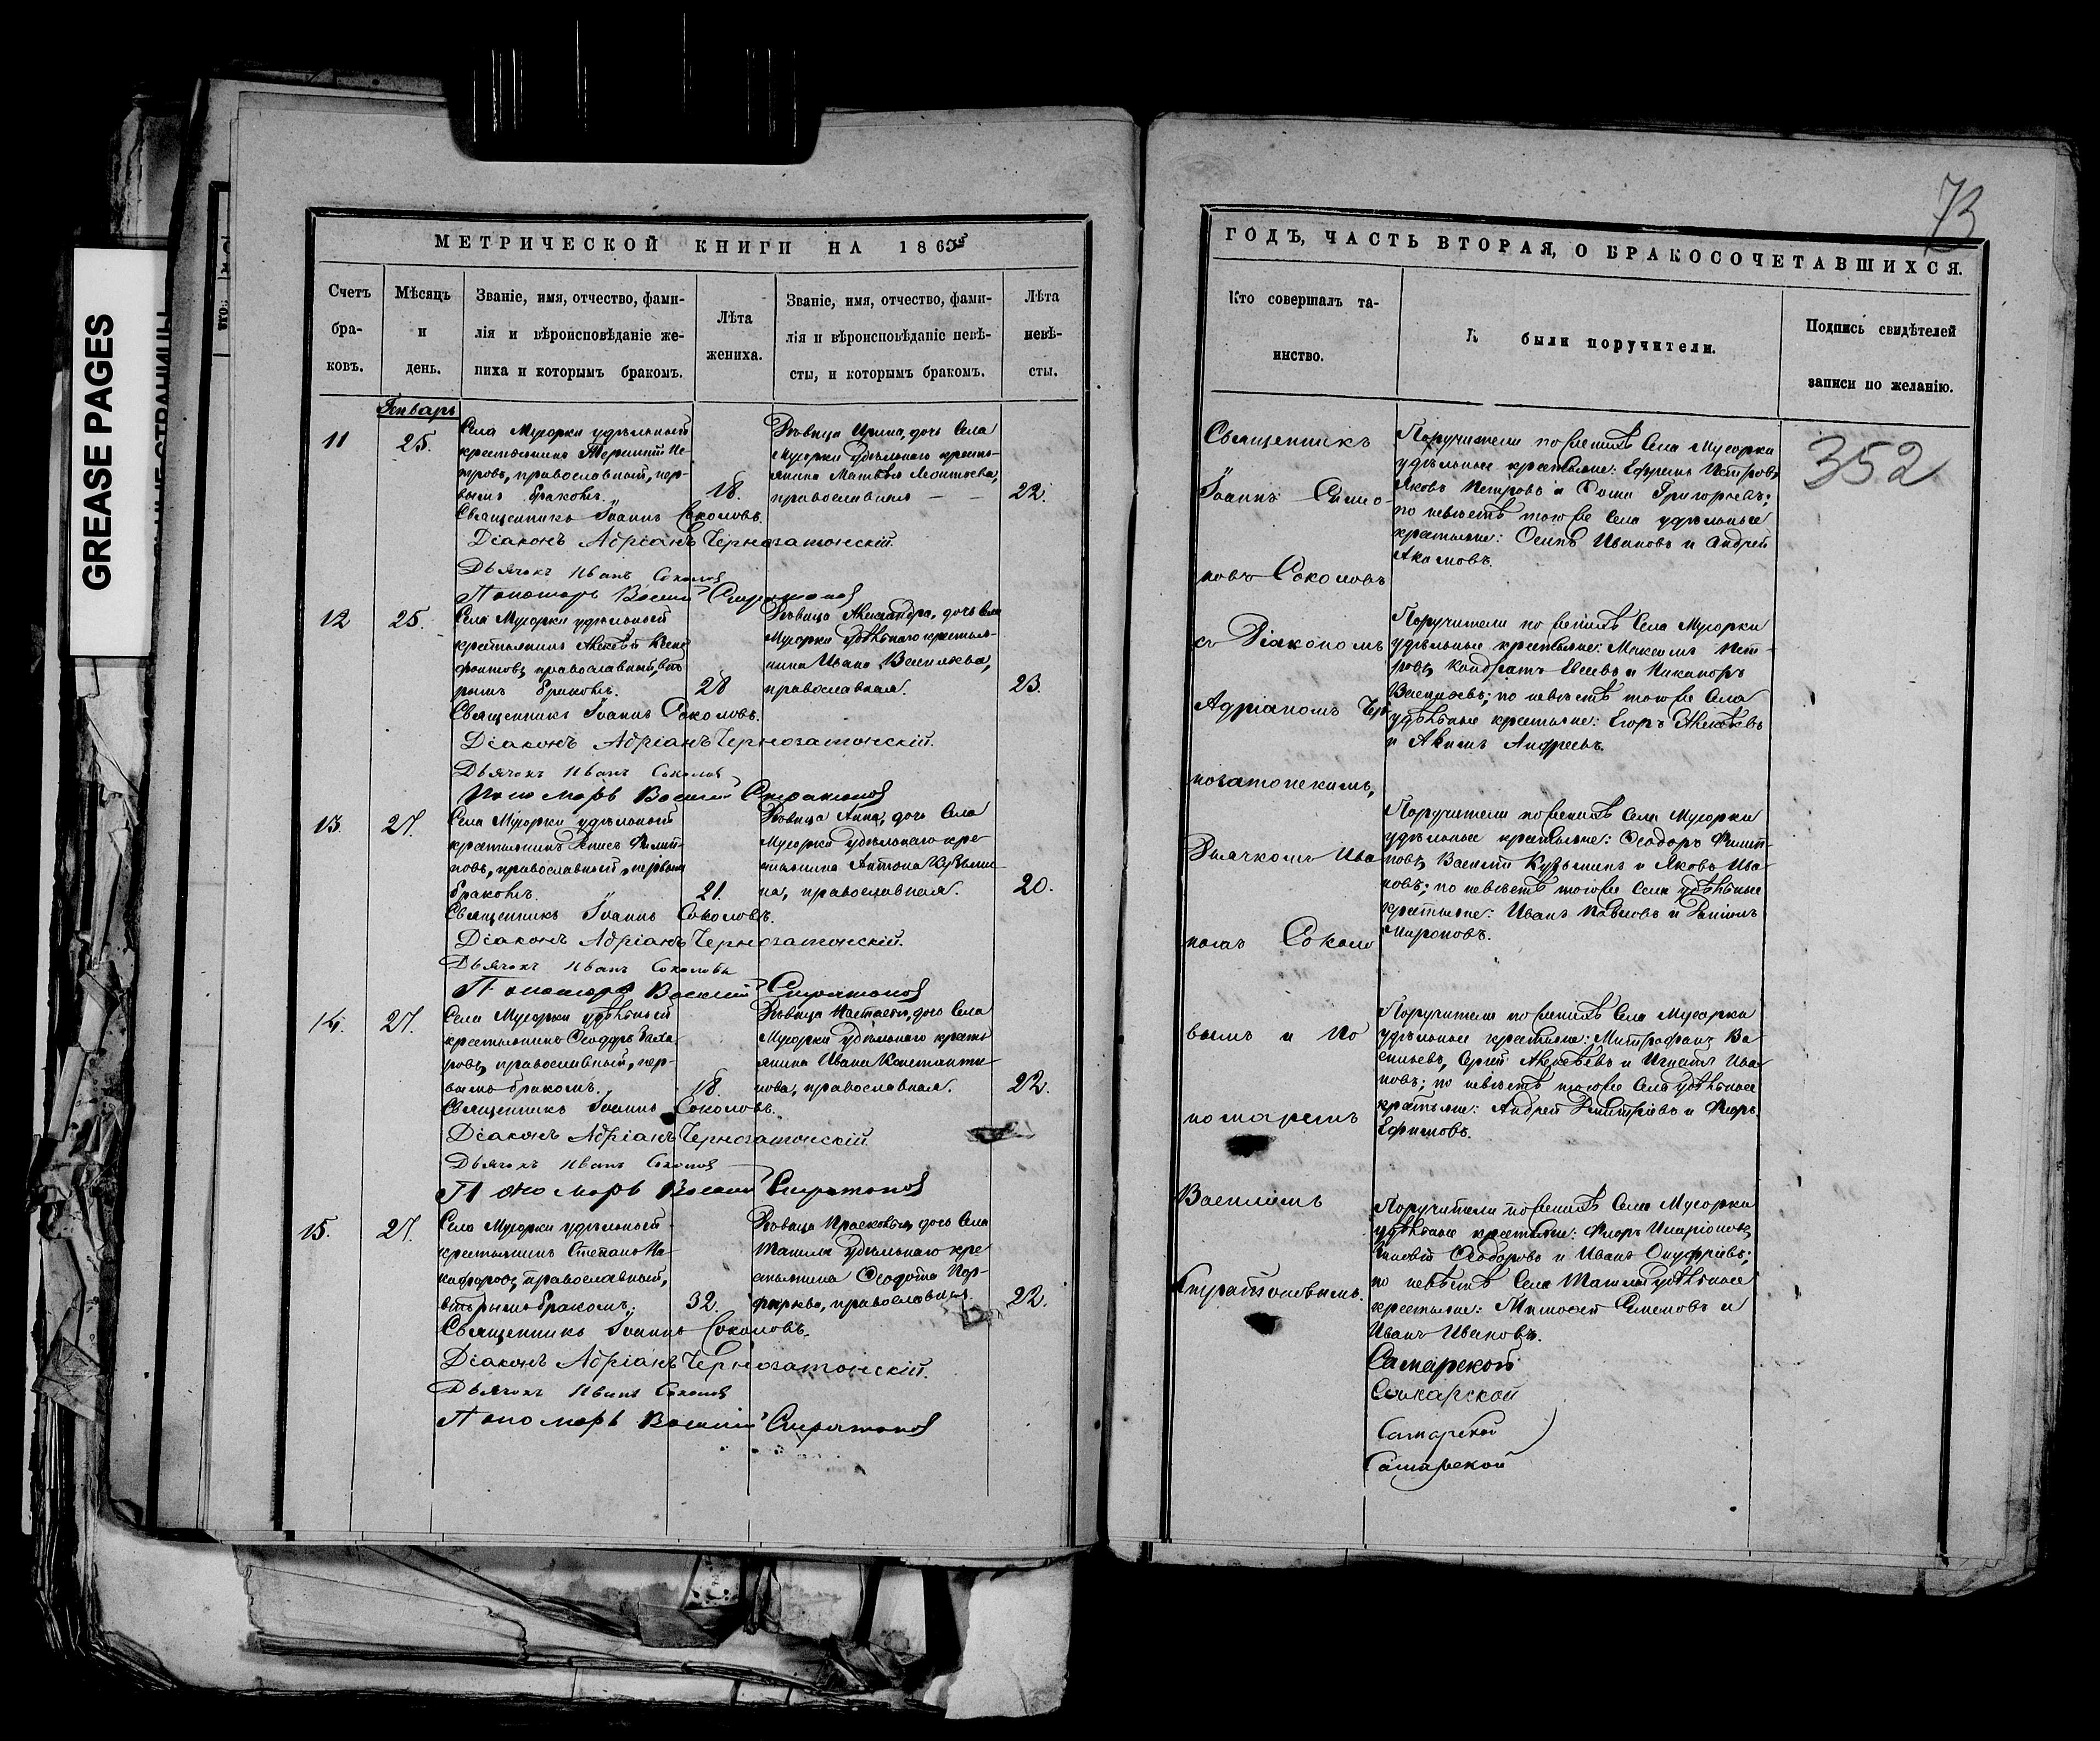 GREASE PAGES
73
МЕТРИЧЕСКОЙ КНИГИ НА 186
Счетъ бра- ковъ.
Мѣсяцъ и день.
Званіе, имя, отчество, фами- лія и вѣроисповѣданіе же- ниха и которымъ бракомъ.
Лѣта жениха.
Званіе, имя, отчество, фами- лія и вѣроисповѣданіе невѣ- сты, и которымъ бракомъ.
Лѣта невѣ- сты.
Январь
11
25.
Села Мусорки удѣльный
крестьянинъ Терентій Пе-
тровъ, православный, пер-
вымъ бракомъ.
18.
Дѣвица Ирина, дочь Села
Мусорки удѣльнаго кресть-
янина Матвѣя Леонтьева,
православная
22.
Священникъ Іоаннъ Соколовъ.
Діаконъ Адріанъ Чернозатонскій.
Дьячокъ Иванъ Соколов
Пономарь Василий Стратонов
12
25.
Села Мусорки удѣльный
крестьянинъ Алексѣй Ксено
фонтовъ, православный, вто
рымъ бракомъ.
28
Дѣвица Александра, дочь Села
Мусорки удѣльнаго крестья-
нина Ивана Васильева,
православная.
23.
Священникъ Іоаннъ Соколовъ.
Діаконъ Адріанъ Чернозатонскій.
Дьячокъ Иванъ Соколов
Пономарь Василий Стратонов
13.
27.
Села Мусорки удѣльный
крестьянинъ Денисъ Филип-
повъ, православный, первымъ
бракомъ.
21.
Дѣвица Анна, дочь Села
Мусорки удѣльнаго кре-
стьянина Антона Кузьми-
на, православная.
20.
Священникъ Іоаннъ Соколовъ.
Діаконъ Адріанъ Чернозатонскій.
Дьячокъ Иванъ Соколовъ
Пономарь Василий Стратонов
14.
27.
Села Мусорки удѣльный
крестьянинъ Ѳеодоръ Заха-
ровъ, православный, пер-
вымъ бракомъ.
18.
Дѣвица Настасья, дочь Села
Мусорки удѣльнаго кресть
янина Ивана Константи-
нова, православная.
22.
Священникъ Іоаннъ Соколовъ.
Діаконъ Адріанъ Чернозатонскій.
Дьячокъ Иванъ Соколов
Пономарь Василий Стратонов
15.
27.
Села Мусорки удѣльный
крестьянинъ Степанъ Ни-
кифоровъ, православный,
вторымъ бракомъ.
32.
Дѣвица Прасковья, дочь Села
Ташлы удѣльнаго кре
стьянина Ѳедота Пор-
фирьева, православная.
22.
Священникъ Іоаннъ Соколовъ.
Діаконъ Адріанъ Чернозатонскій.
Дьячокъ Иванъ Соколов
Пономарь Василий Стратонов
ГОДЪ, ЧАСТЬ ВТОРАЯ, О БРАКОСОЧЕТАВШИХСЯ.
Кто совершалъ та- инство.
были поручители.
Подпись свидѣтелей записи по желанію.
352
Священникъ
Іоаннъ Симо-
новъ Соколовъ
съ Діакономъ
Адріаномъ Чер
нозатонскимъ,
Дьячкомъ Ива
номъ Соколо
вымъ и По
номаремъ
Василіемъ
Стратоновымъ.
Поручители по женихѣ Села Мусорки
удѣльные крестьяне: Ефремъ Петровъ,
Яковъ Петровъ и Ѳома Григорьевъ;
по невѣстѣ того же Села удѣльные
крестьяне: Осипъ Ивановъ и Андрей
Акимовъ.
Поручители по женихѣ Села Мусорки
удѣльные крестьяне: Максимъ Пет-
ровъ, Кондратъ Евсеевъ и Никаноръ
Васильевъ; по невѣстѣ того же Села
удѣльные крестьяне: Егоръ Алексѣевъ
и Акимъ Андреевъ.
Поручители по женихѣ Села Мусорки
удѣльные крестьяне: Ѳеодоръ Филип-
повъ, Василій Кузьминъ и Яковъ Ива
новъ; по невѣстѣ того же Села удѣльные
крестьяне: Иванъ Павловъ и
Мироновъ.
Поручители по женихѣ Села Мусорки
удѣльные крестьяне: Митрофанъ Ва
сильевъ, Сергѣй Алексѣевъ и Игнатій Ива
новъ; по невѣстѣ того же Села удѣльные
крестьяне: Андрей Дмитріевъ и Флоръ
Ефимовъ.
Поручители по женихѣ Села Мусорки
удѣльные крестьяне: Флоръ Иларіоновъ,
Ѳеодоровъ и Иванъ Онуфріевъ;
по невѣстѣ Села Ташлы удѣльные
крестьяне: Тимофей Симоновъ и
Иванъ Ивановъ.
Самарской
Самарской
Самарской
Самарской